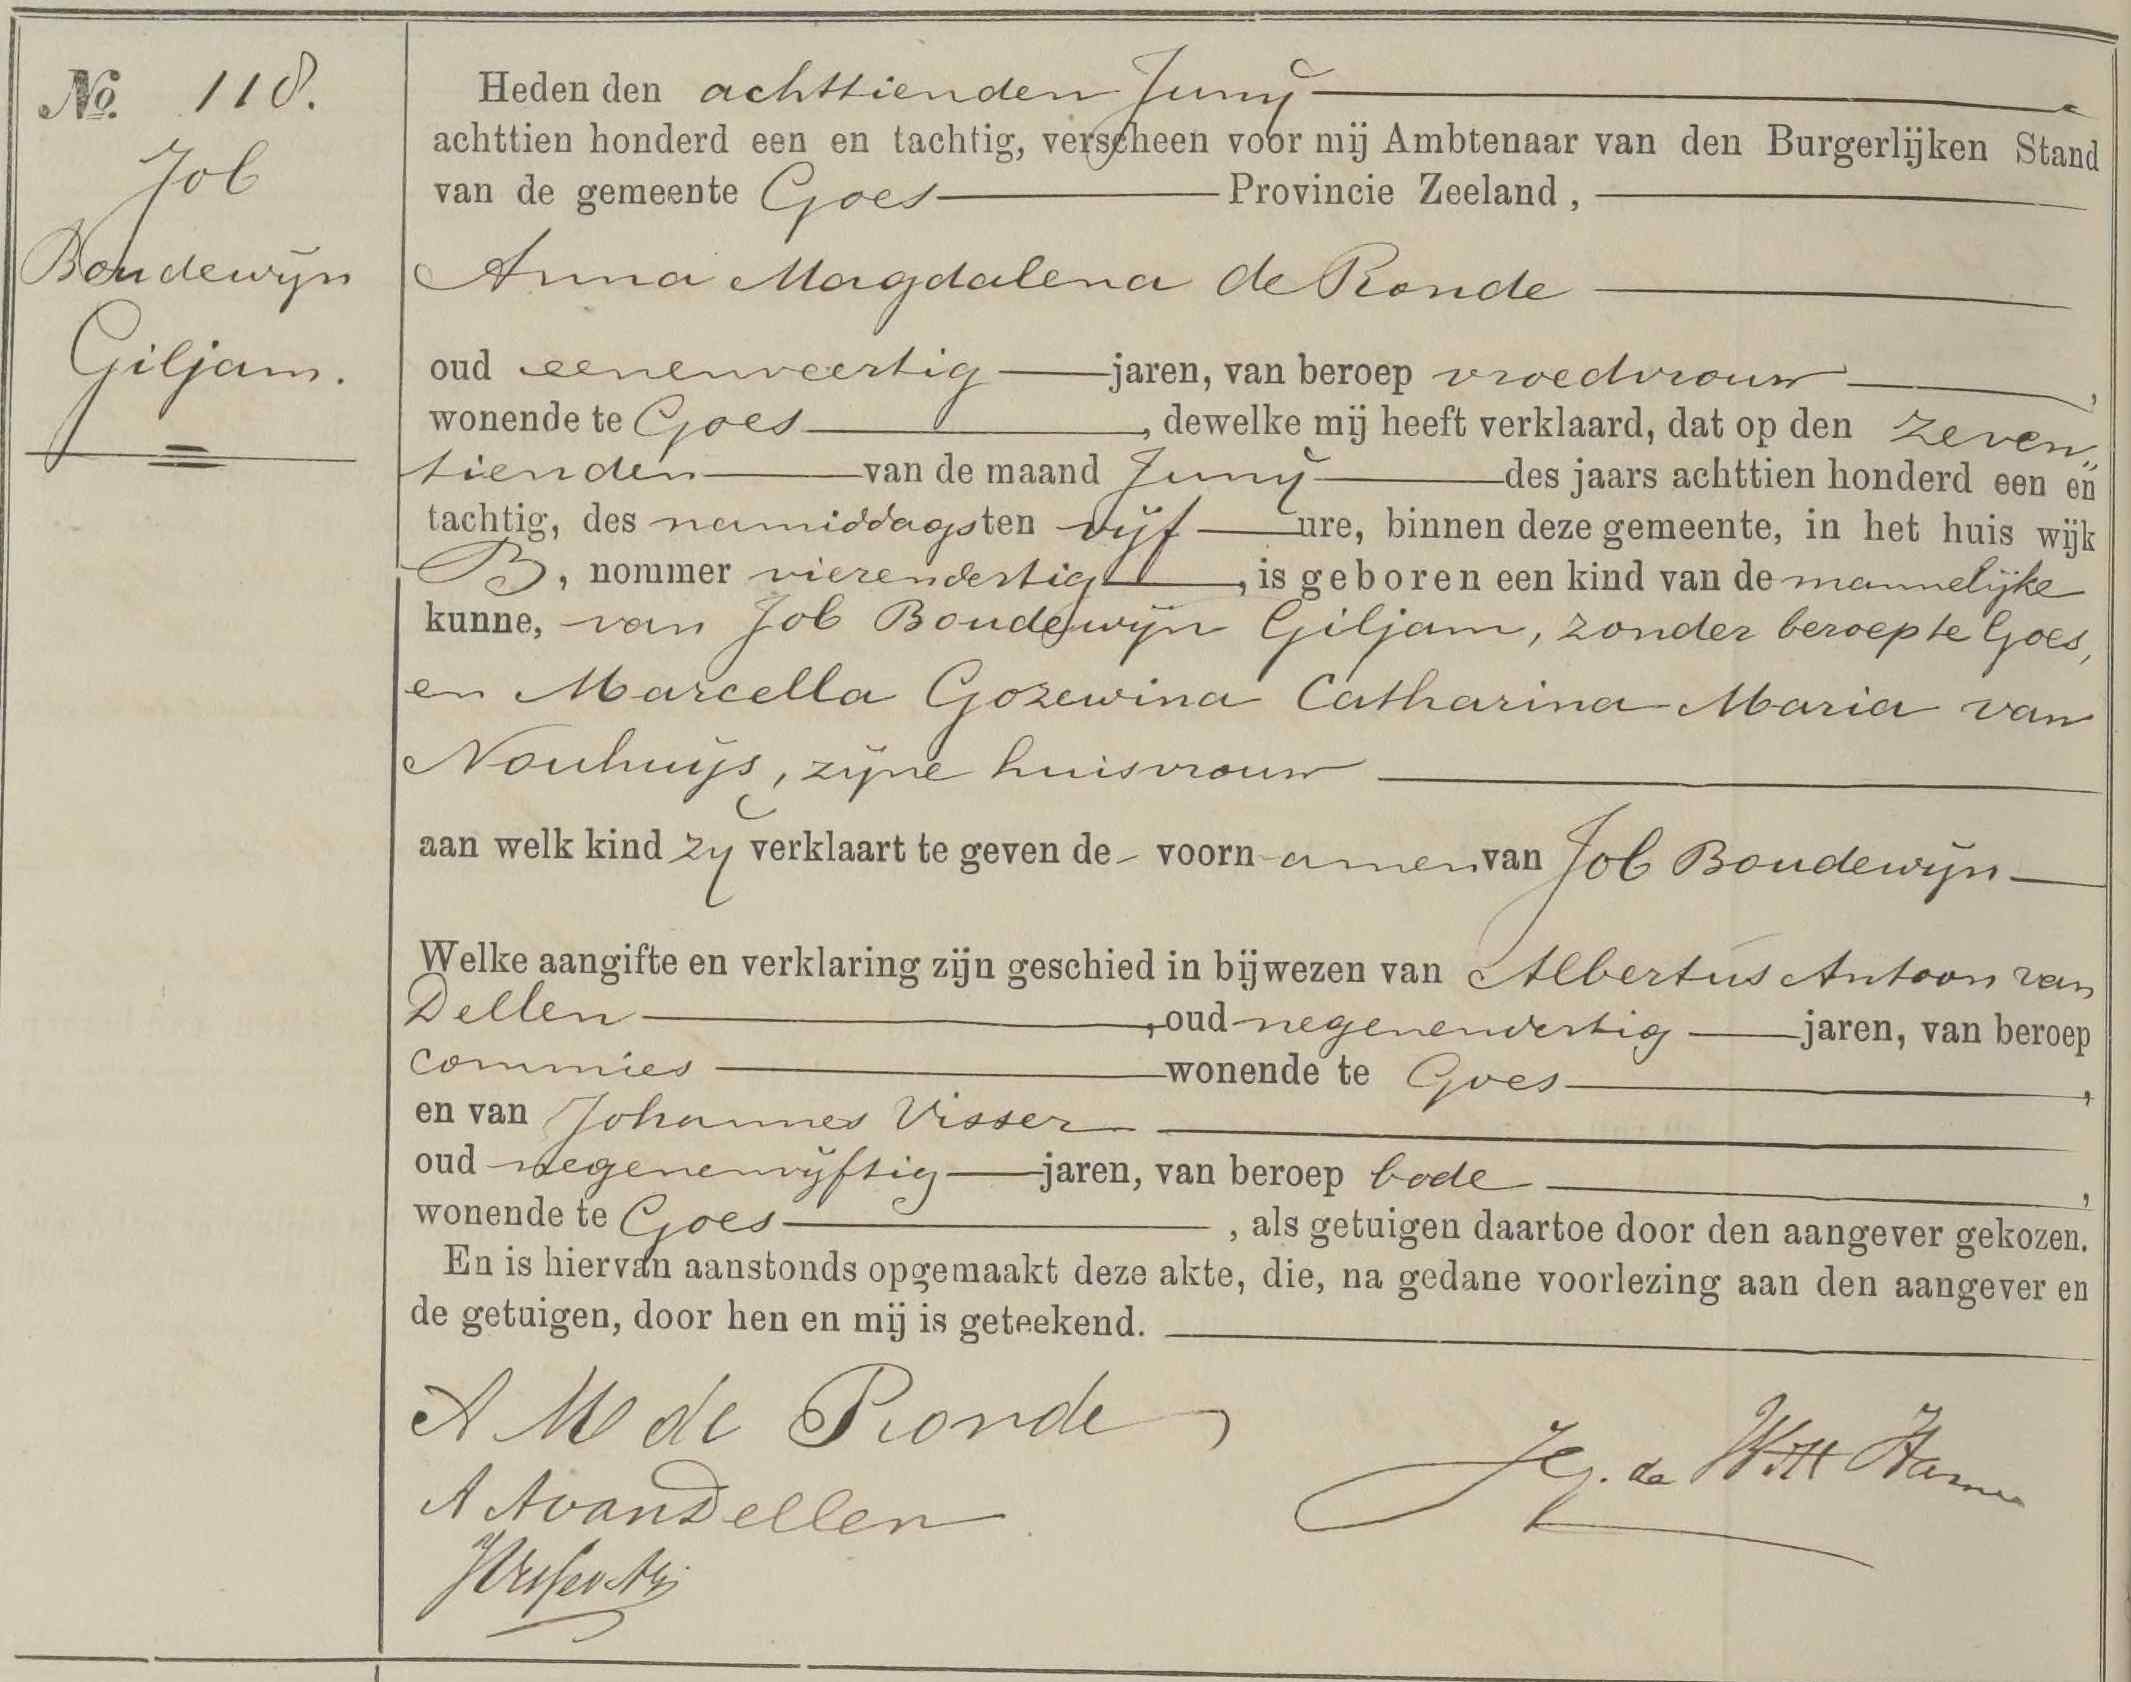 No. 118.
Job
Boudewijn
Giljam.
Heden den achttienden Junij
achttien honderd een en tachtig, verscheen voor mij Ambtenaar van den Burgerlijken Stand
van de gemeente Goes Provincie Zeeland,
Anna Magdalena de Ronde
oud eenenveertig jaren, van beroep vroedvrouw,
wonende te Goes, dewelke mij heeft verklaard, dat op den zeven„
tienden van de maand Junij des jaars achttien honderd een en
tachtig, des namiddags ten vijf ure, binnen deze gemeente, in het huis wijk
B, nommer vierendertig, is geboren een kind van de mannelijke
kunne, van Job Boudewijn Giljam, zonder beroep te Goes,
en Marcella Gozewina Catharina Maria van
Nouhuijs, zijne huisvrouw
aan welk kind zij verklaart te geven de voornamen van Job Boudewijn
Welke aangifte en verklaring zijn geschied in bijwezen van Albertus Antoon van
Dellen, oud negenendertig jaren, van beroep
commies wonende te Goes,
en van Johannes Visser
oud negenenvijftig jaren, van beroep bode,
wonende te Goes, als getuigen daartoe door den aangever gekozen.
En is hiervan aanstonds opgemaakt deze akte, die, na gedane voorlezing aan den aangever en
de getuigen, door hen en mij is geteekend.
A M de Ronde
A A van Dellen
JVisser
de Witt Hamer